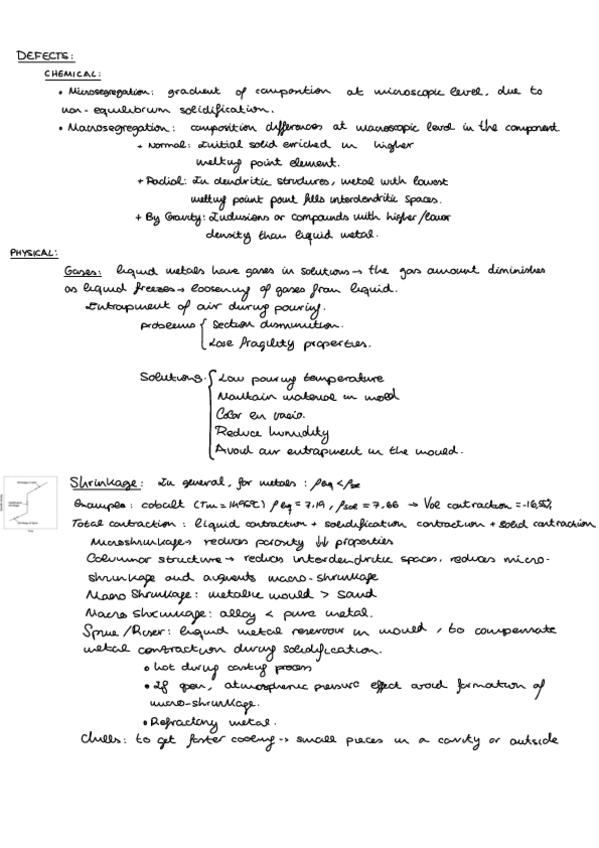 DEFECTS:
CHEMICAL:
• Microsegregation: gradient of composition at microscopic level, due to
non-equilibrium solidification.
• Macrosegregation: composition differences at macroscopic level in the component
+ Normal: Initial solid enriched in higher
melting point element.
+ Radial: In dendritic structures, metal with lowest
melting point point fills interdendritic spaces.
+ By Gravity: Inclusions or compounds with higher/lower
density than liquid metal.
PHYSICAL:
Gases: liquid metals have gases in solutions → the gas amount diminishes
as liquid freezes → loosening of gases from liquid.
Entrapment of air during pouring.
problems { Section diminution.
Lose fragility properties.
Solutions. { Low pouring temperature
Maintain material in mold
Color en vacio.
Reduce humidity
Avoid air entrapment in the mould.
Shrinkage: In general, for metals: ρliq < ρsol
Examples: cobalt (Tm = 1495°C) ρliq = 7,19, ρsol = 7,66 → Vol contraction =
Total contraction: liquid contraction + solidification contraction + solid contraction
Microshrinkage → reduces porosity ↓↓ properties
Columnar structure → reduces interdendritic spaces, reduces micro-
shrinkage and augments macro-shrinkage
Macro Shrinkage: metallic mould > sand
Macro shrinkage: alloy < pure metal.
Sprue/Riser: liquid metal reservoir in mould, to compensate
metal contraction during solidification.
• hot during casting process
• If open, atmospheric pressure effect avoid formation of
micro-shrinkage.
• Refractory metal.
Chills: to get faster cooling → small pieces in a cavity or outside